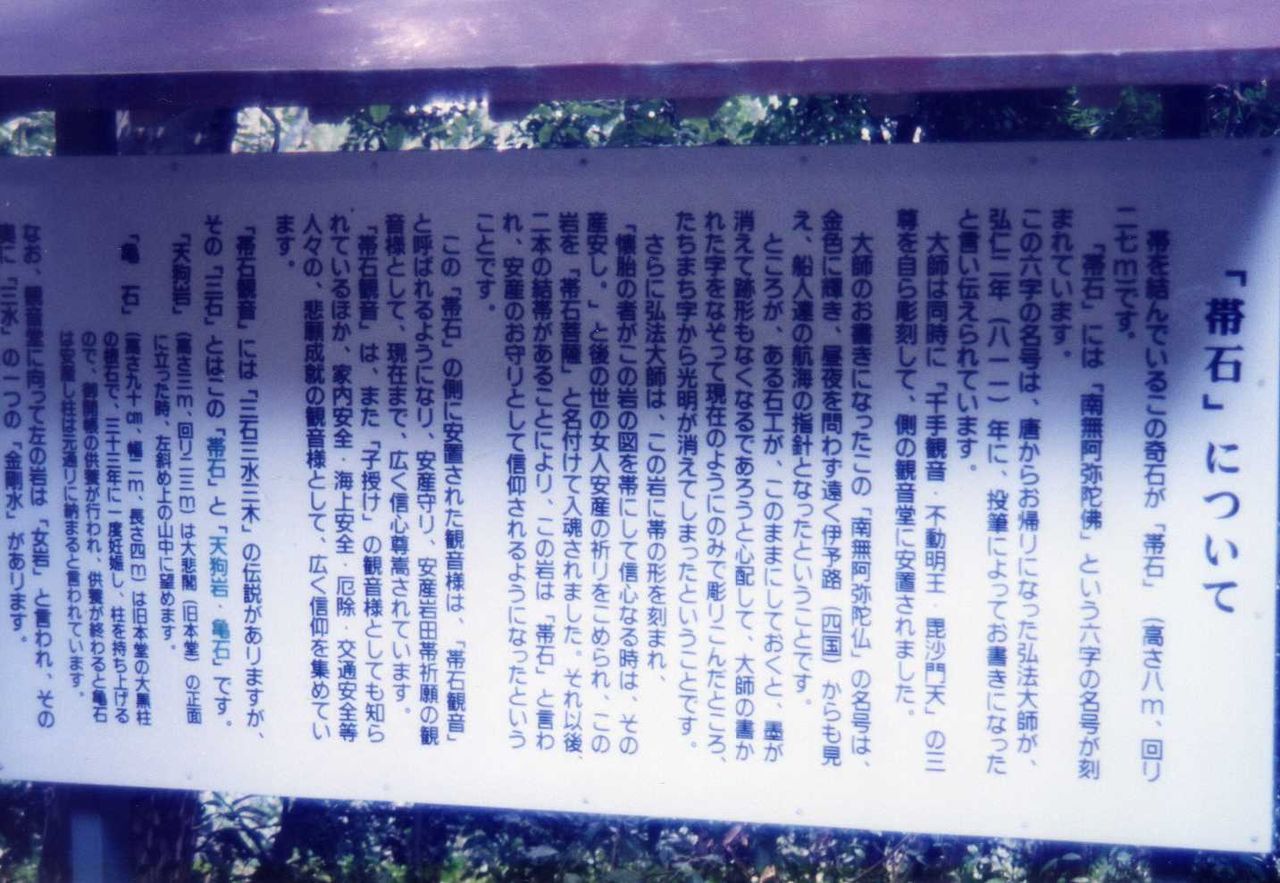 「帯石」について
帯を結んでいるこの奇石が「帯石」（高さ八ｍ、回り
二七ｍ）です。
「帯石」には「南無阿弥陀佛」という六字の名号が刻
まれています。
この六字の名号は、唐からお帰りになった弘法大師が、
弘仁二年（八一一）年に、投筆によってお書きになった
と言い伝えられています。
大師は同時に「千手観音・不動明王・毘沙門天」の三
尊を自ら彫刻して、側の観音堂に安置されました。
大師のお書きになったこの「南無阿弥陀仏」の名号は、
金色に輝き、昼夜を問わず遠く伊予路（四国）からも見
え、船人達の航海の指針となったということです。
ところが、ある石工が、このままにしておくと、墨が
消えて跡形もなくなるであろうと心配して、大師の書か
れた字をなぞって現在のようにのみで彫りこんだところ、
たちまち字から光明が消えてしまったということです。
さらに弘法大師は、この岩に帯の形を刻まれ、
「懐胎の者がこの岩の図を帯にして信心なる時は、その
産安し。」と後の世の女人安産の祈りをこめられ、この
岩を「帯石菩薩」と名付けて入魂されました。それ以後、
二本の結帯があることにより、この岩は「帯石」と言わ
れ、安産のお守りとして信仰されるようになったという
ことです。
この「帯石」の側に安置された観音様は、「帯石観音」
と呼ばれるようになり、安産守り、安産岩田帯祈願の観
音様として、現在まで、広く信心尊嵩されています。
「帯石観音」は、また「子授け」の観音様としても知ら
れているほか、家内安全・海上安全・厄除・交通安全等
人々の、悲願成就の観音様として、広く信仰を集めてい
ます。
「帯石観音」には「三石三水三木」の伝説がありますが、
その「三石」とはこの「帯石」と「天狗岩・亀石」です。
「天狗岩」（高さ三ｍ、回り二三ｍ）は大悲閣（旧本堂）の正面
に立った時、左斜め上の山中に望めます。
「亀 石」（高さ九十㎝、幅二ｍ、長さ四ｍ）は旧本堂の大黒柱
の礎石で、三十三年に一度妊娠し、柱を持ち上げる
ので、御開帳の供養が行われ、供養が終わると亀石
は安産し柱は元通りに納まると言われています。
なお、観音堂に向って左の岩は「女岩」と言われ、その
奥に「三水」の一つの「金剛水」があります。